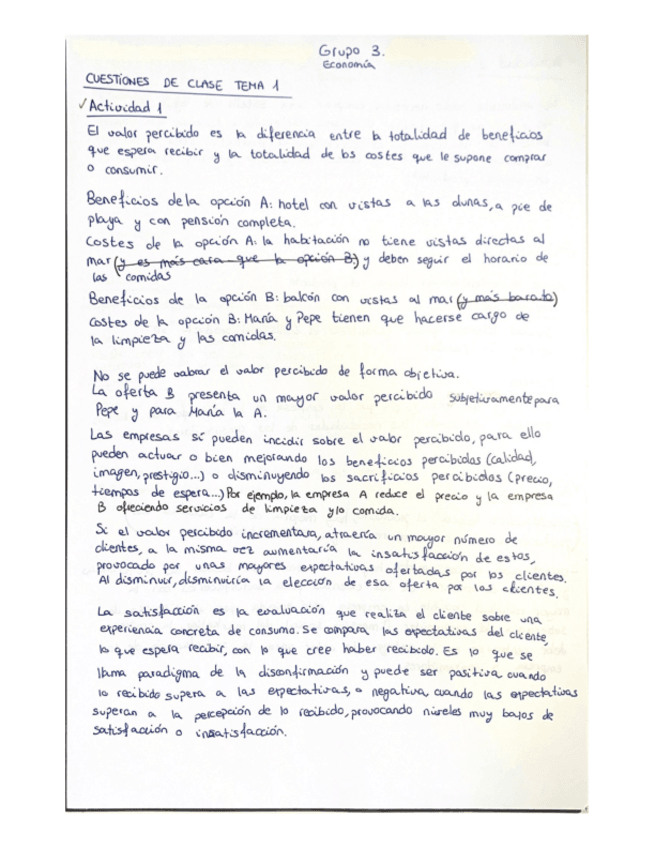 Grupo 3.
Economía
CUESTIONES DE CLASE TEMA 1
✓Actividad 1
El valor percibido es la diferencia entre la totalidad de beneficios
que espera recibir y la totalidad de los costes que le supone comprar
o consumir.
Beneficios de la opción A: hotel con vistas a las dunas, a pie de
playa y con pensión completa.
Costes de la opción A: la habitación no tiene vistas directas al
mar (y es más cara que la opción B) y deben seguir el horario de
las comidas
Beneficios de la opción B: balcón con vistas al mar (y más barato)
Costes de la opción B: María y Pepe tienen que hacerse cargo de
la limpieza y las comidas.
No se puede valorar el valor percibido de forma objetiva.
La oferta B presenta un mayor valor percibido subjetivamente para
Pepe y para María la A.
Las empresas sí pueden incidir sobre el valor percibido, para ello
pueden actuar o bien mejorando los beneficios percibidos (calidad,
imagen, prestigio...) o disminuyendo los sacrificios percibidos (precio,
tiempos de espera...) Por ejemplo, la empresa A reduce el precio y la empresa
B ofreciendo servicios de limpieza y/o comida.
Si el valor percibido incrementara, atraería un mayor número de
clientes, a la misma vez aumentaría la insatisfacción de estos,
provocado por unas mayores expectativas ofertadas por los clientes.
Al disminuir, disminuiría la elección de esa oferta por los clientes.
La satisfacción es la evaluación que realiza el cliente sobre una
experiencia concreta de consumo. Se compara las expectativas del cliente,
lo que espera recibir, con lo que cree haber recibido. Es lo que se
llama paradigma de la disconfirmación y puede ser positiva, cuando
lo recibido supera a las expectativas, o negativa, cuando las expectativas
superan a la percepción de lo recibido, provocando niveles muy bajos de
satisfacción o insatisfacción.